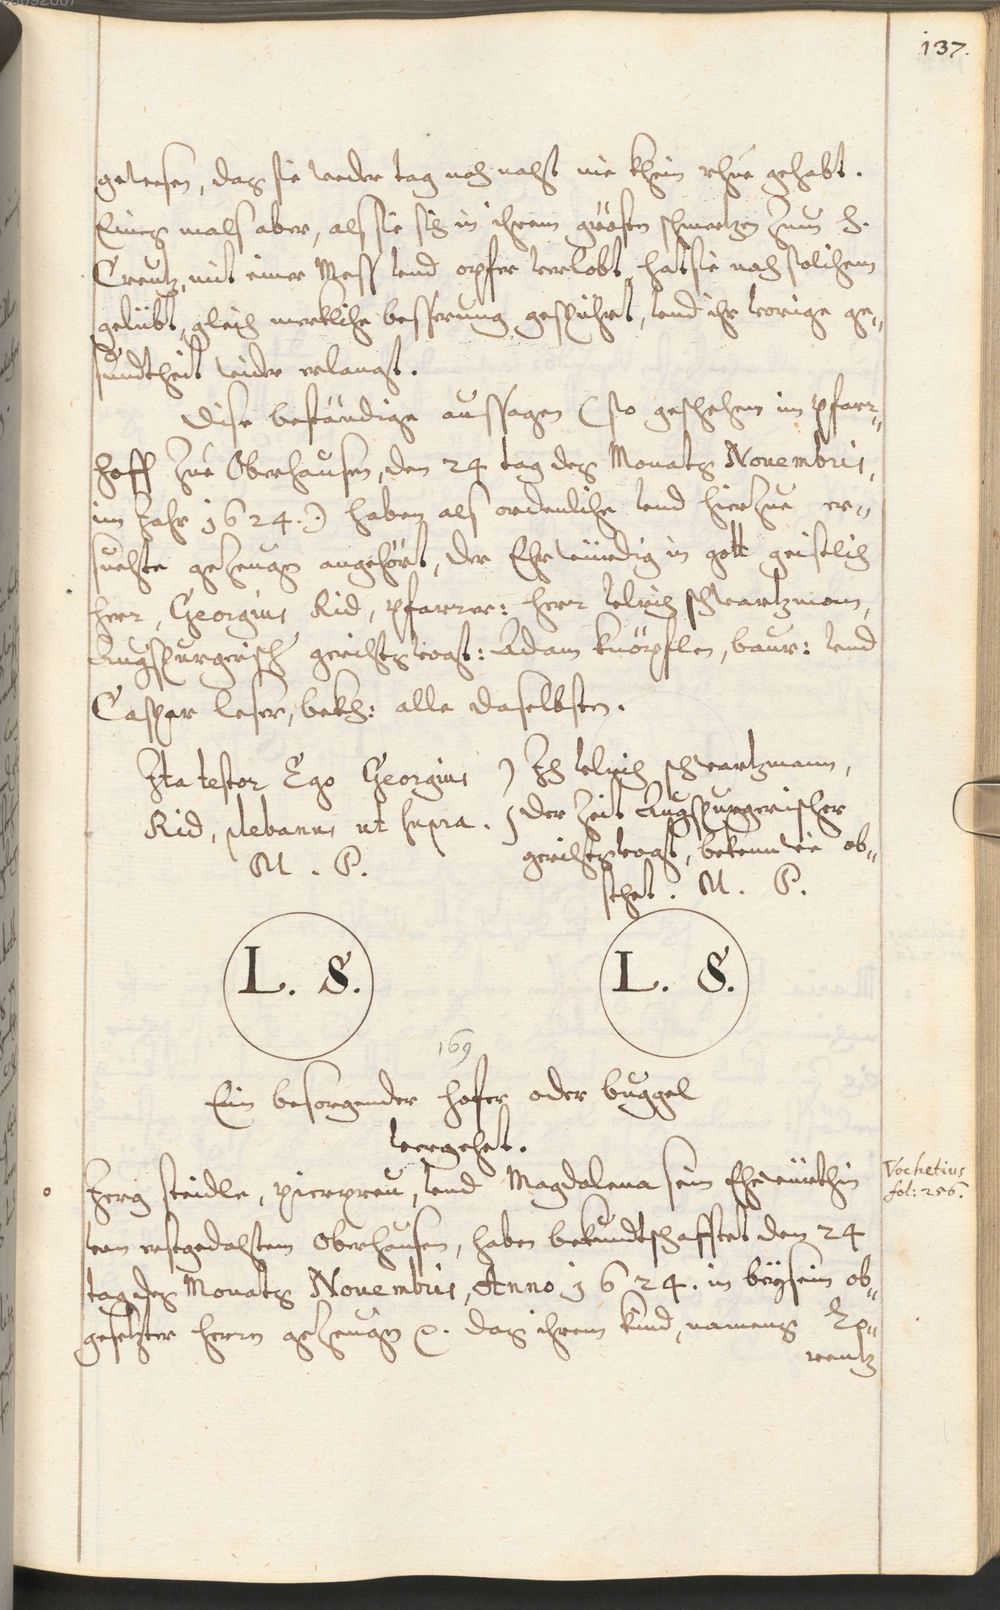 137.
gewesen, das sie weder tag noch nacht nie khein rhue gehabt.
Eines mals aber, als sie sich in ihrem grösten schmertzen zum H.
Creutz, mit einer Mess vnd opfer verlobt, hat sie nach solichem
gelübt, gleich merkliche besserung gespührt, vnd ihr vorige ge„
sundtheit wider erlangt.
Dise beständige aussagen (so geschehen im pfarr„
hoff zue Oberhausen, den 24 tag des Monats Nouembris,
im Jahr 1624.) haben als ordenliche vnd hierzue er„
suechte gezeugen angehört, der Ehrwürdig in gott geistlich
herr, Georgius Rid, pfarrer: herr Vlrich Schwartzmann,
Augspurgisch gerichtsvogt: Adam Knöpflen, baur: vnd
Caspar Leser, bekh: alle daselbsten.
Ita testor Ego Georgius
Rid, plebanus ut supra.
M. P.
Ich Vlrich schwartzmann,
der Zeit Augspurgerischer
gerichtsvogt, bekenn wie ob„
stehet. M. P.
L. S.
L. S.
169
Ein besorgender hofer oder buggel
vergehet.
Vochetius
fol: 256.
Jerg Steidle, pierpreu, vnd Magdalena sein Ehewürthin
von erstgedachtem Oberhausen, haben bekundtschafftet den 24
tag des Monats Nouembris, Anno 1624. in beysein ob„
gesetzter herrn gezeugen etc. das ihrem kind, namens Lo„
rentz